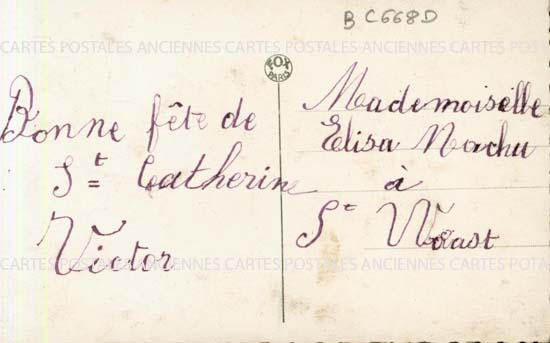 B C668D
CARTES POSTALES ANCIENNES CARTES POSTALES ANCIENNES CARTES POSTALES
FOX
PARIS
Bonne fête de
St Catherine
Victor
Mademoiselle
Elisa Machu
à
St Waast
CARTES POSTALES ANCIENNES CARTES POSTALES ANCIENNES CARTES POSTALES